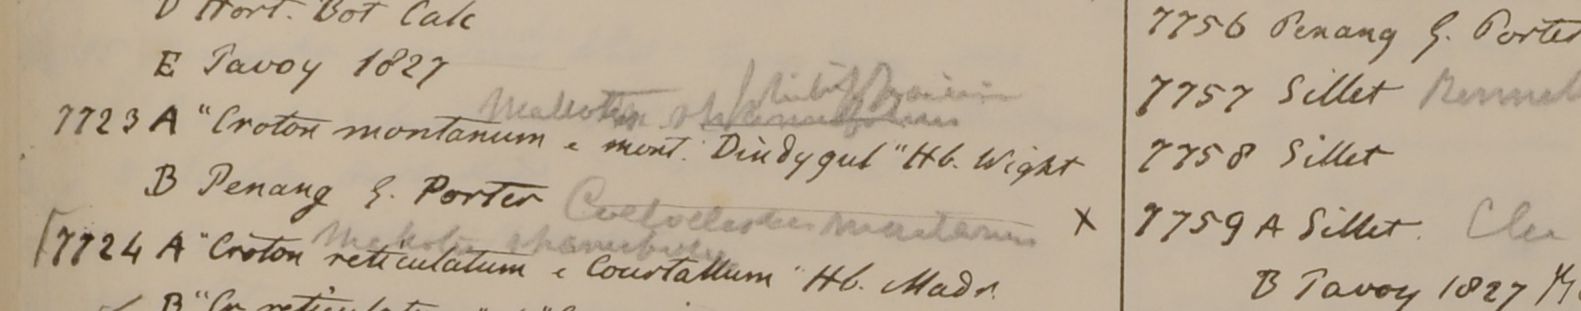 D Hort. Bot Calc
E Tavoy 1827
7723 A "Croton montanum e mont. Dindygul" Hb. Wight
B Penang G. Porter Coelodiscus montanus X
7724 A "Croton reticulatum e Courtallum" Hb. Madr.
B "Cr reticulatum
7756 Penang G. Porter
7757 Sillet
7758 Sillet
7759 A Sillet.
B Tavoy 1827